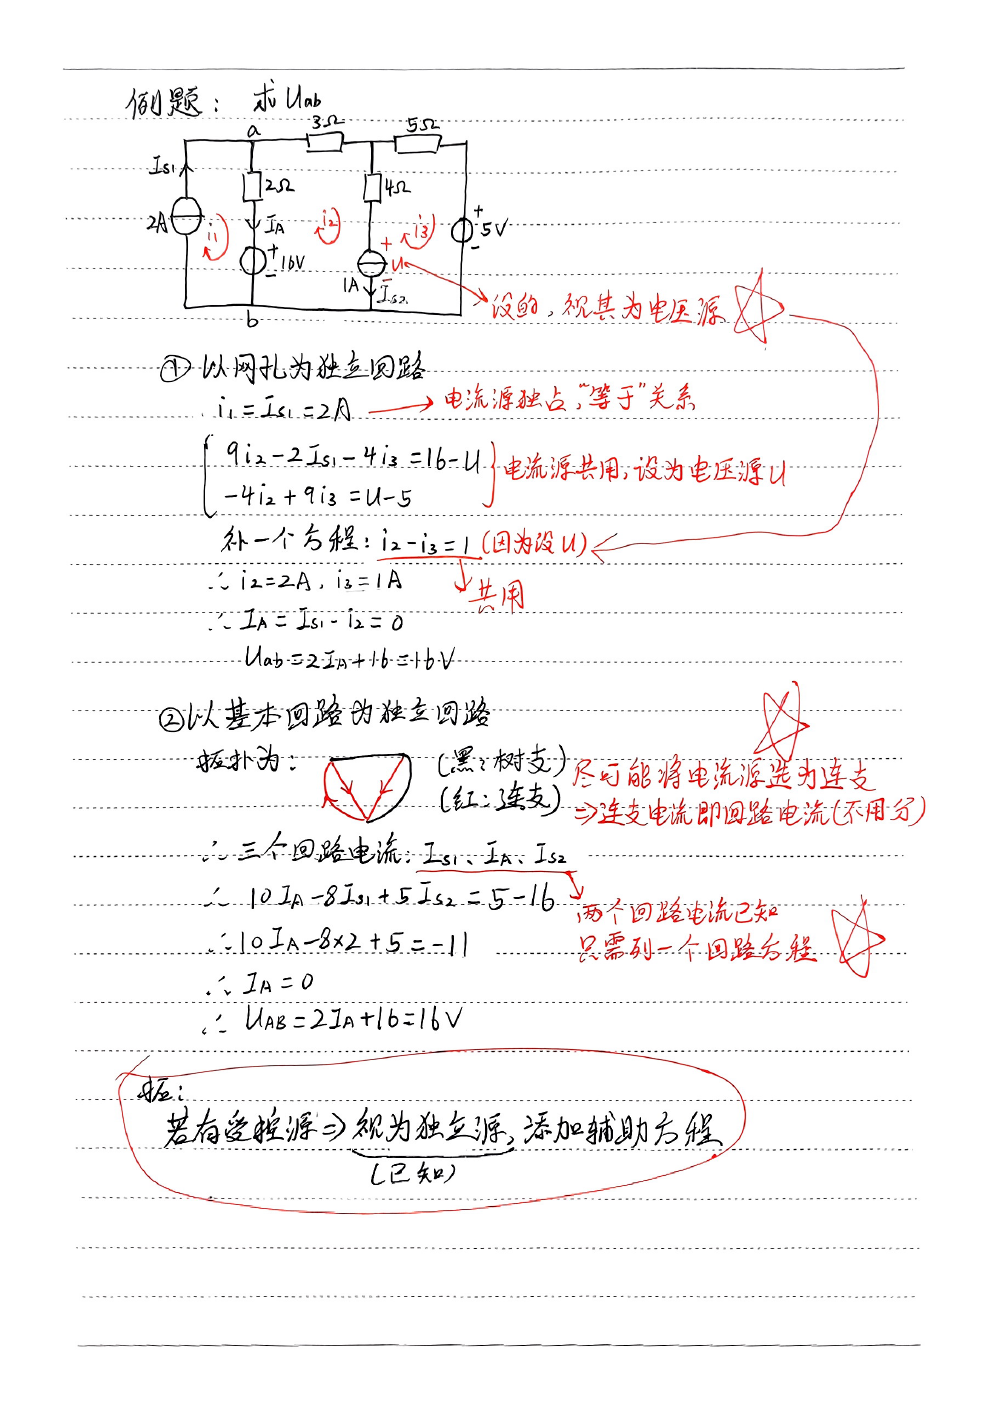 例题: 求Uab
a 3Ω 5Ω
Is1 2Ω 4Ω
2A i1 IA i2 i3 + 5V -
+ 16V - + U -
1A Is2
b
设的,视其为电压源
① 以网孔为独立回路
i1=Is1=2A 电流源独占,“等于”关系
9i2-2Is1-4i3=16-U
-4i2+9i3=U-5
电流源共用,设为电压源U
补一个方程: i2-i3=1 (因为设U)
∴ i2=2A, i3=1A 共用
∴ IA=Is1-i2=0
Uab=2IA+16=16V
②以基本回路为独立回路
拓扑为: (黑:树支)
(红:连支)
尽可能将电流源选为连支
⇒连支电流即回路电流(不用分)
∴ 三个回路电流: Is1、IA、Is2
∴ 10IA-8Is1+5Is2=5-16
两个回路电流已知
只需列一个回路方程
∴10IA-8×2+5=-11
∴ IA=0
∴ UAB=2IA+16=16V
拓:
若有受控源⇒视为独立源,添加辅助方程
(已知)